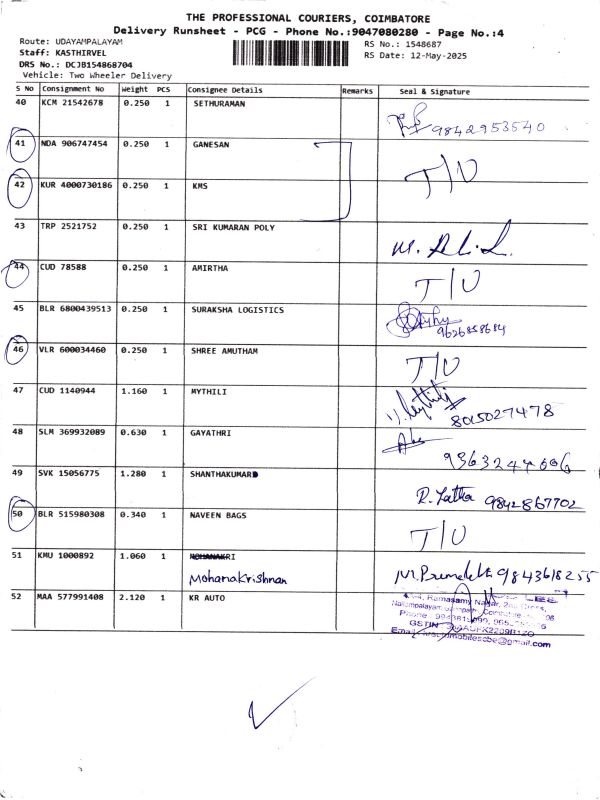 THE PROFESSIONAL COURIERS, COIMBATORE
Delivery Runsheet - PCG - Phone No.:9047080280 - Page No.:4
Route: UDAYAMPALAYAM
RS No.: 1548687
Staff: KASTHIRVEL
RS Date: 12-May-2025
DRS No.: DCJB154868704
Vehicle: Two Wheeler Delivery
S No Consignment No Weight PCS Consignee Details Remarks Seal & Signature
40 KCM 21542678 0.250 1 SETHURAMAN 9842953540
41 NDA 906747454 0.250 1 GANESAN T/U
42 KUR 4000730186 0.250 1 KMS
43 TRP 2521752 0.250 1 SRI KUMARAN POLY
44 CUD 78588 0.250 1 AMIRTHA T/U
45 BLR 6800439513 0.250 1 SURAKSHA LOGISTICS 9626858684
46 VLR 600034460 0.250 1 SHREE AMUTHAM T/U
47 CUD 1140944 1.160 1 MYTHILI 8015027478
48 SLM 369932089 0.630 1 GAYATHRI
49 SVK 15056775 1.280 1 SHANTHAKUMAR R. Latha 9842867702
50 BLR 515980308 0.340 1 NAVEEN BAGS T/U
51 KMU 1000892 1.060 1 9843618255
Mohanakrishnan
52 MAA 577991408 2.120 1 KR AUTO
Ramasamy Nagar,
Phone
GSTIN
Email